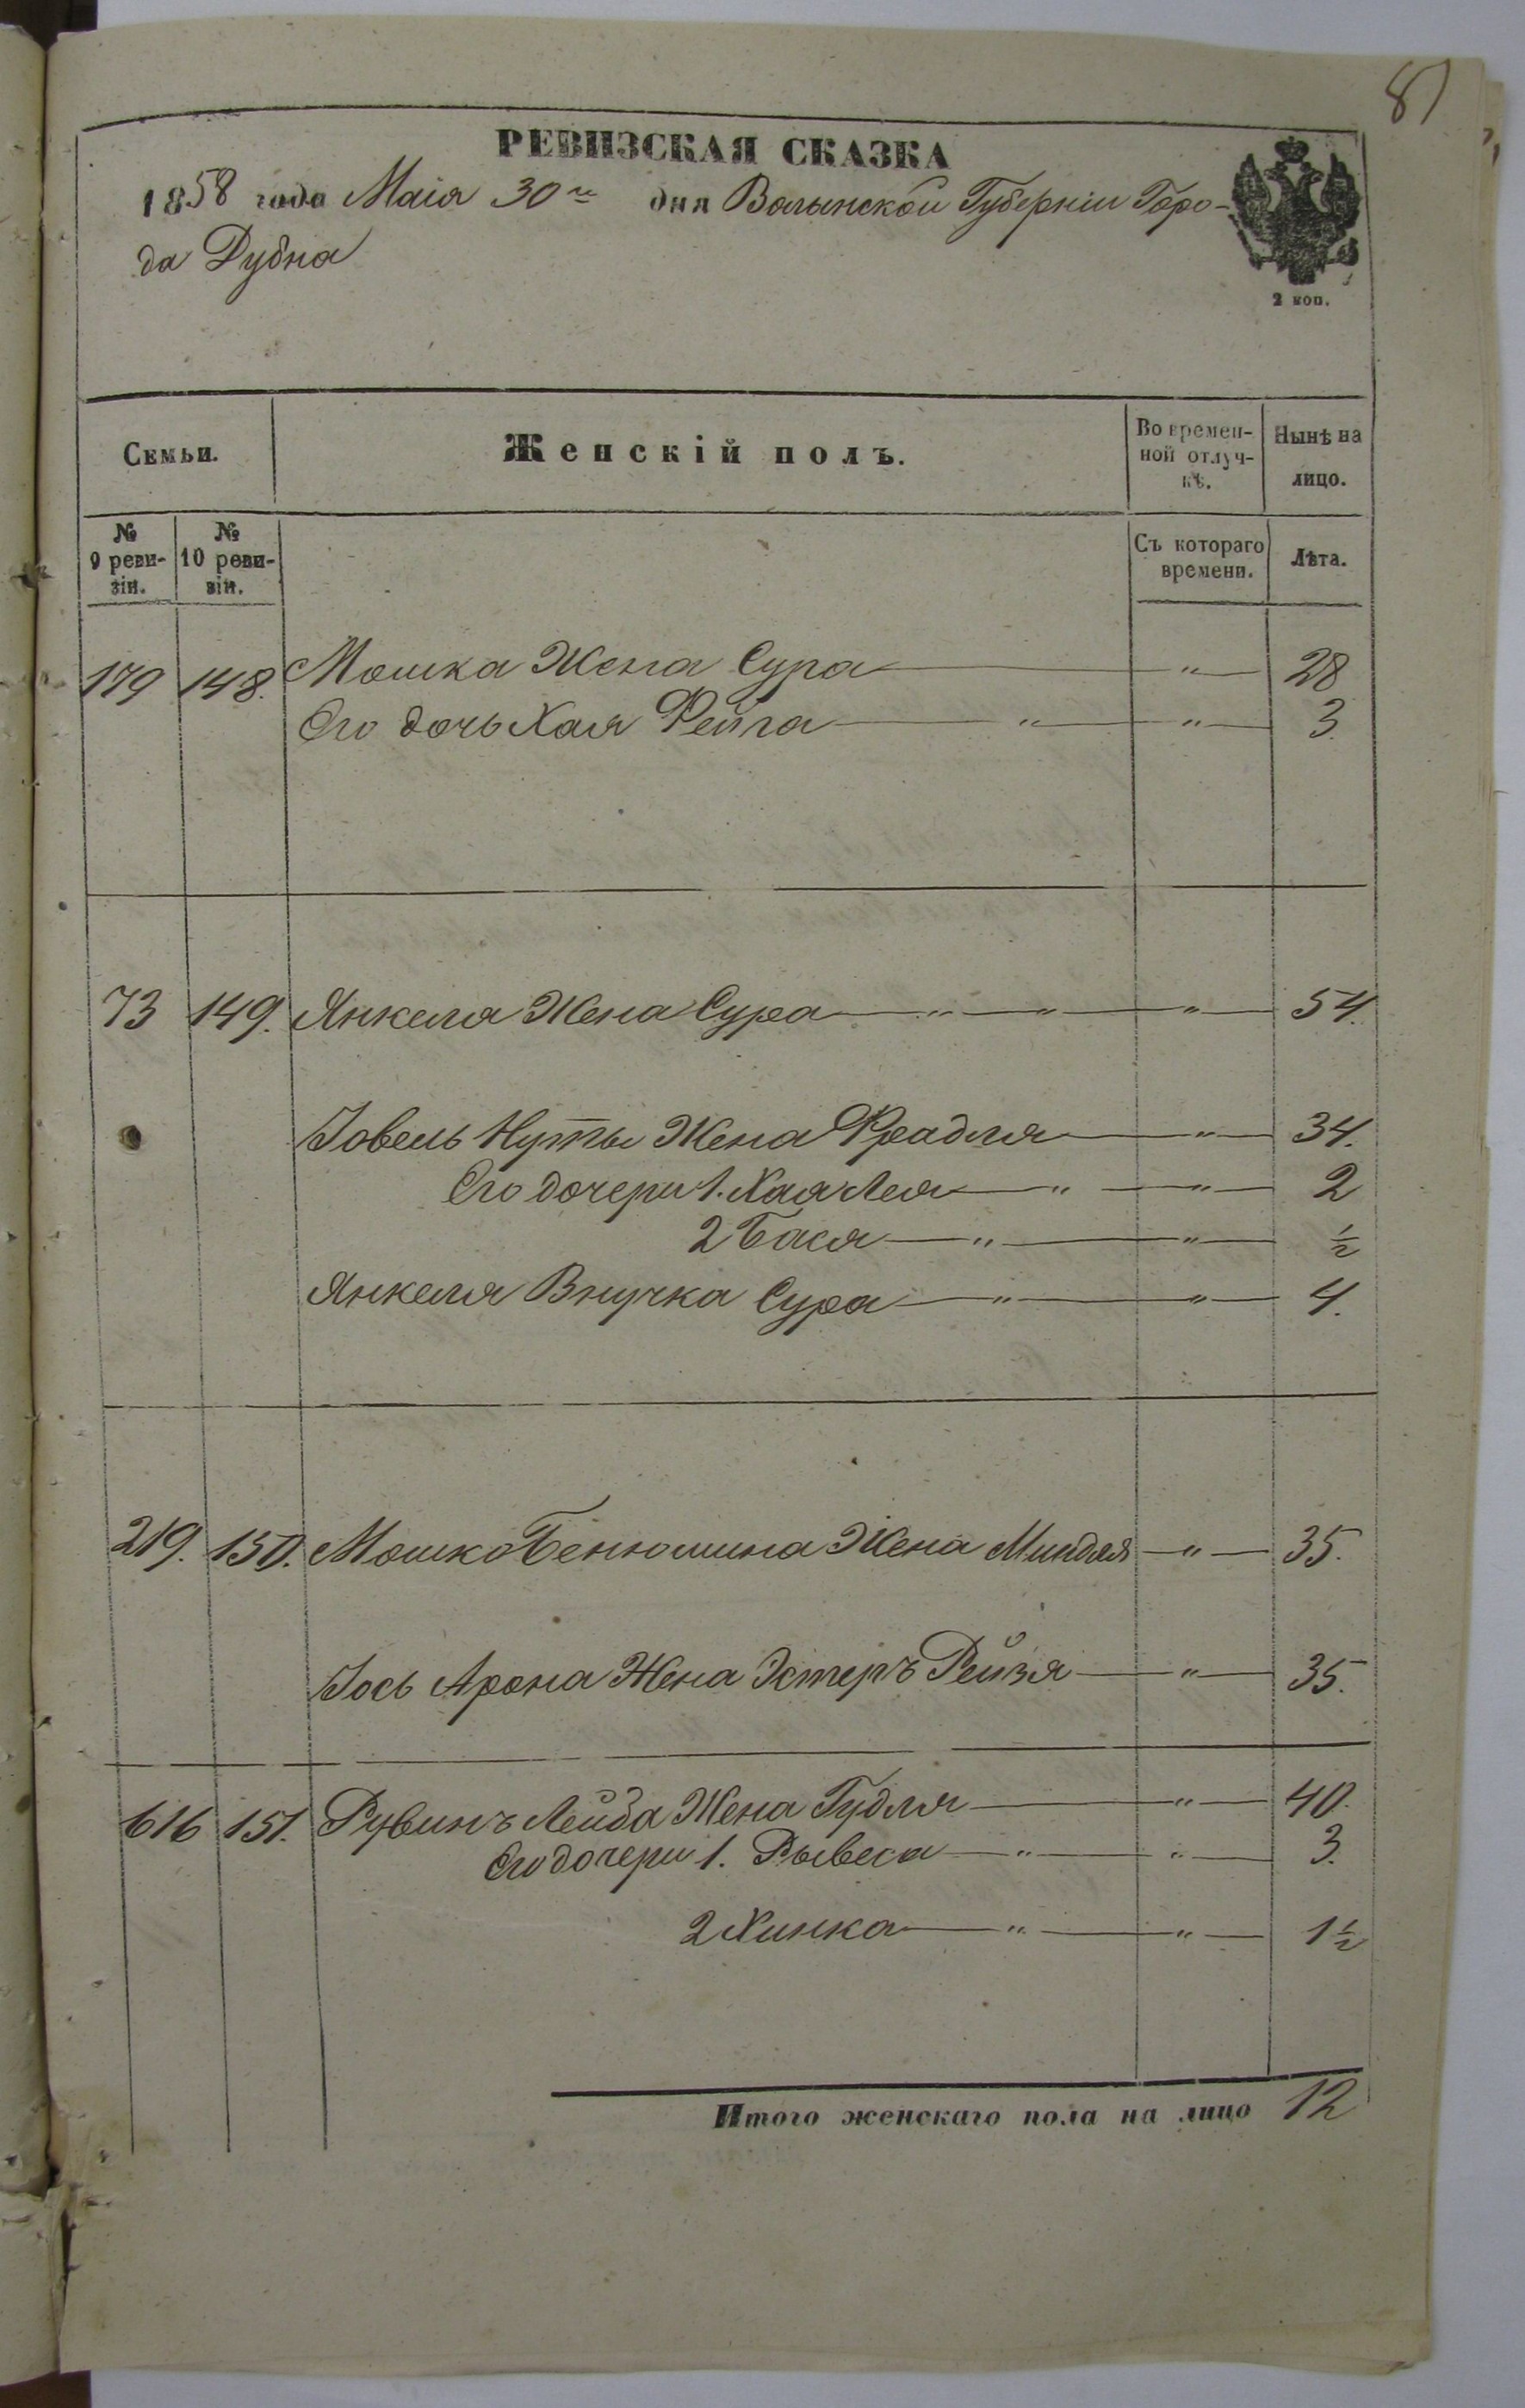 81
РЕВИЗСКАЯ СКАЗКА
1858 года Маія 30го дня Волынской Губерніи Горо-
да Дубна
2 коп.
Семьи.
Женскій полъ.
Во времен-
ной отлуч-
кѣ.
Нынѣ на
лицо.
№
9 реви-
зіи.
№
10 реви-
зіи.
Съ котораго
времени.
Лѣта.
179 148. Мошка Жена Сура — " — 28
Его дочь Хая Фейга — " — " — 3.
73 149. Янкеля Жена Сура — " — " — " — 54.
Іовель Нуты Жена Фрадля — " — 34.
Его дочери 1. Хая Лея — " — " — 2
2 Бася — " — " — ½
Янкеля Внучка Сура — " — " — 4.
219. 150. Мошко Бенюмина Жена Миндля — " — 35.
Іось Арона Жена Эстеръ Рейзя — " — 35.
616 151. Рувинъ Лейба Жена Гудля — " — 40.
Его дочери 1. Рывеса — " — " — 3.
2 Хинка — " — " — 1½
Итого женскаго пола на лицо 12